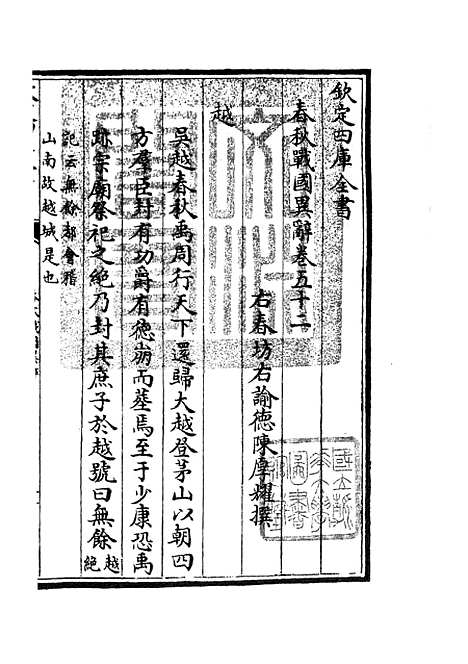 欽定四庫全書
春秋戰國異辭卷五十二
右春坊右諭德陳厚耀撰
越
吳越春秋禹周行天下還歸大越登茅山以朝四
方羣臣封有功爵有德崩而葬焉至于少康恐禹
跡宗廟祭祀之絕乃封其庶子於越號曰無餘越絕
記云無餘都會稽
山南故越城是也